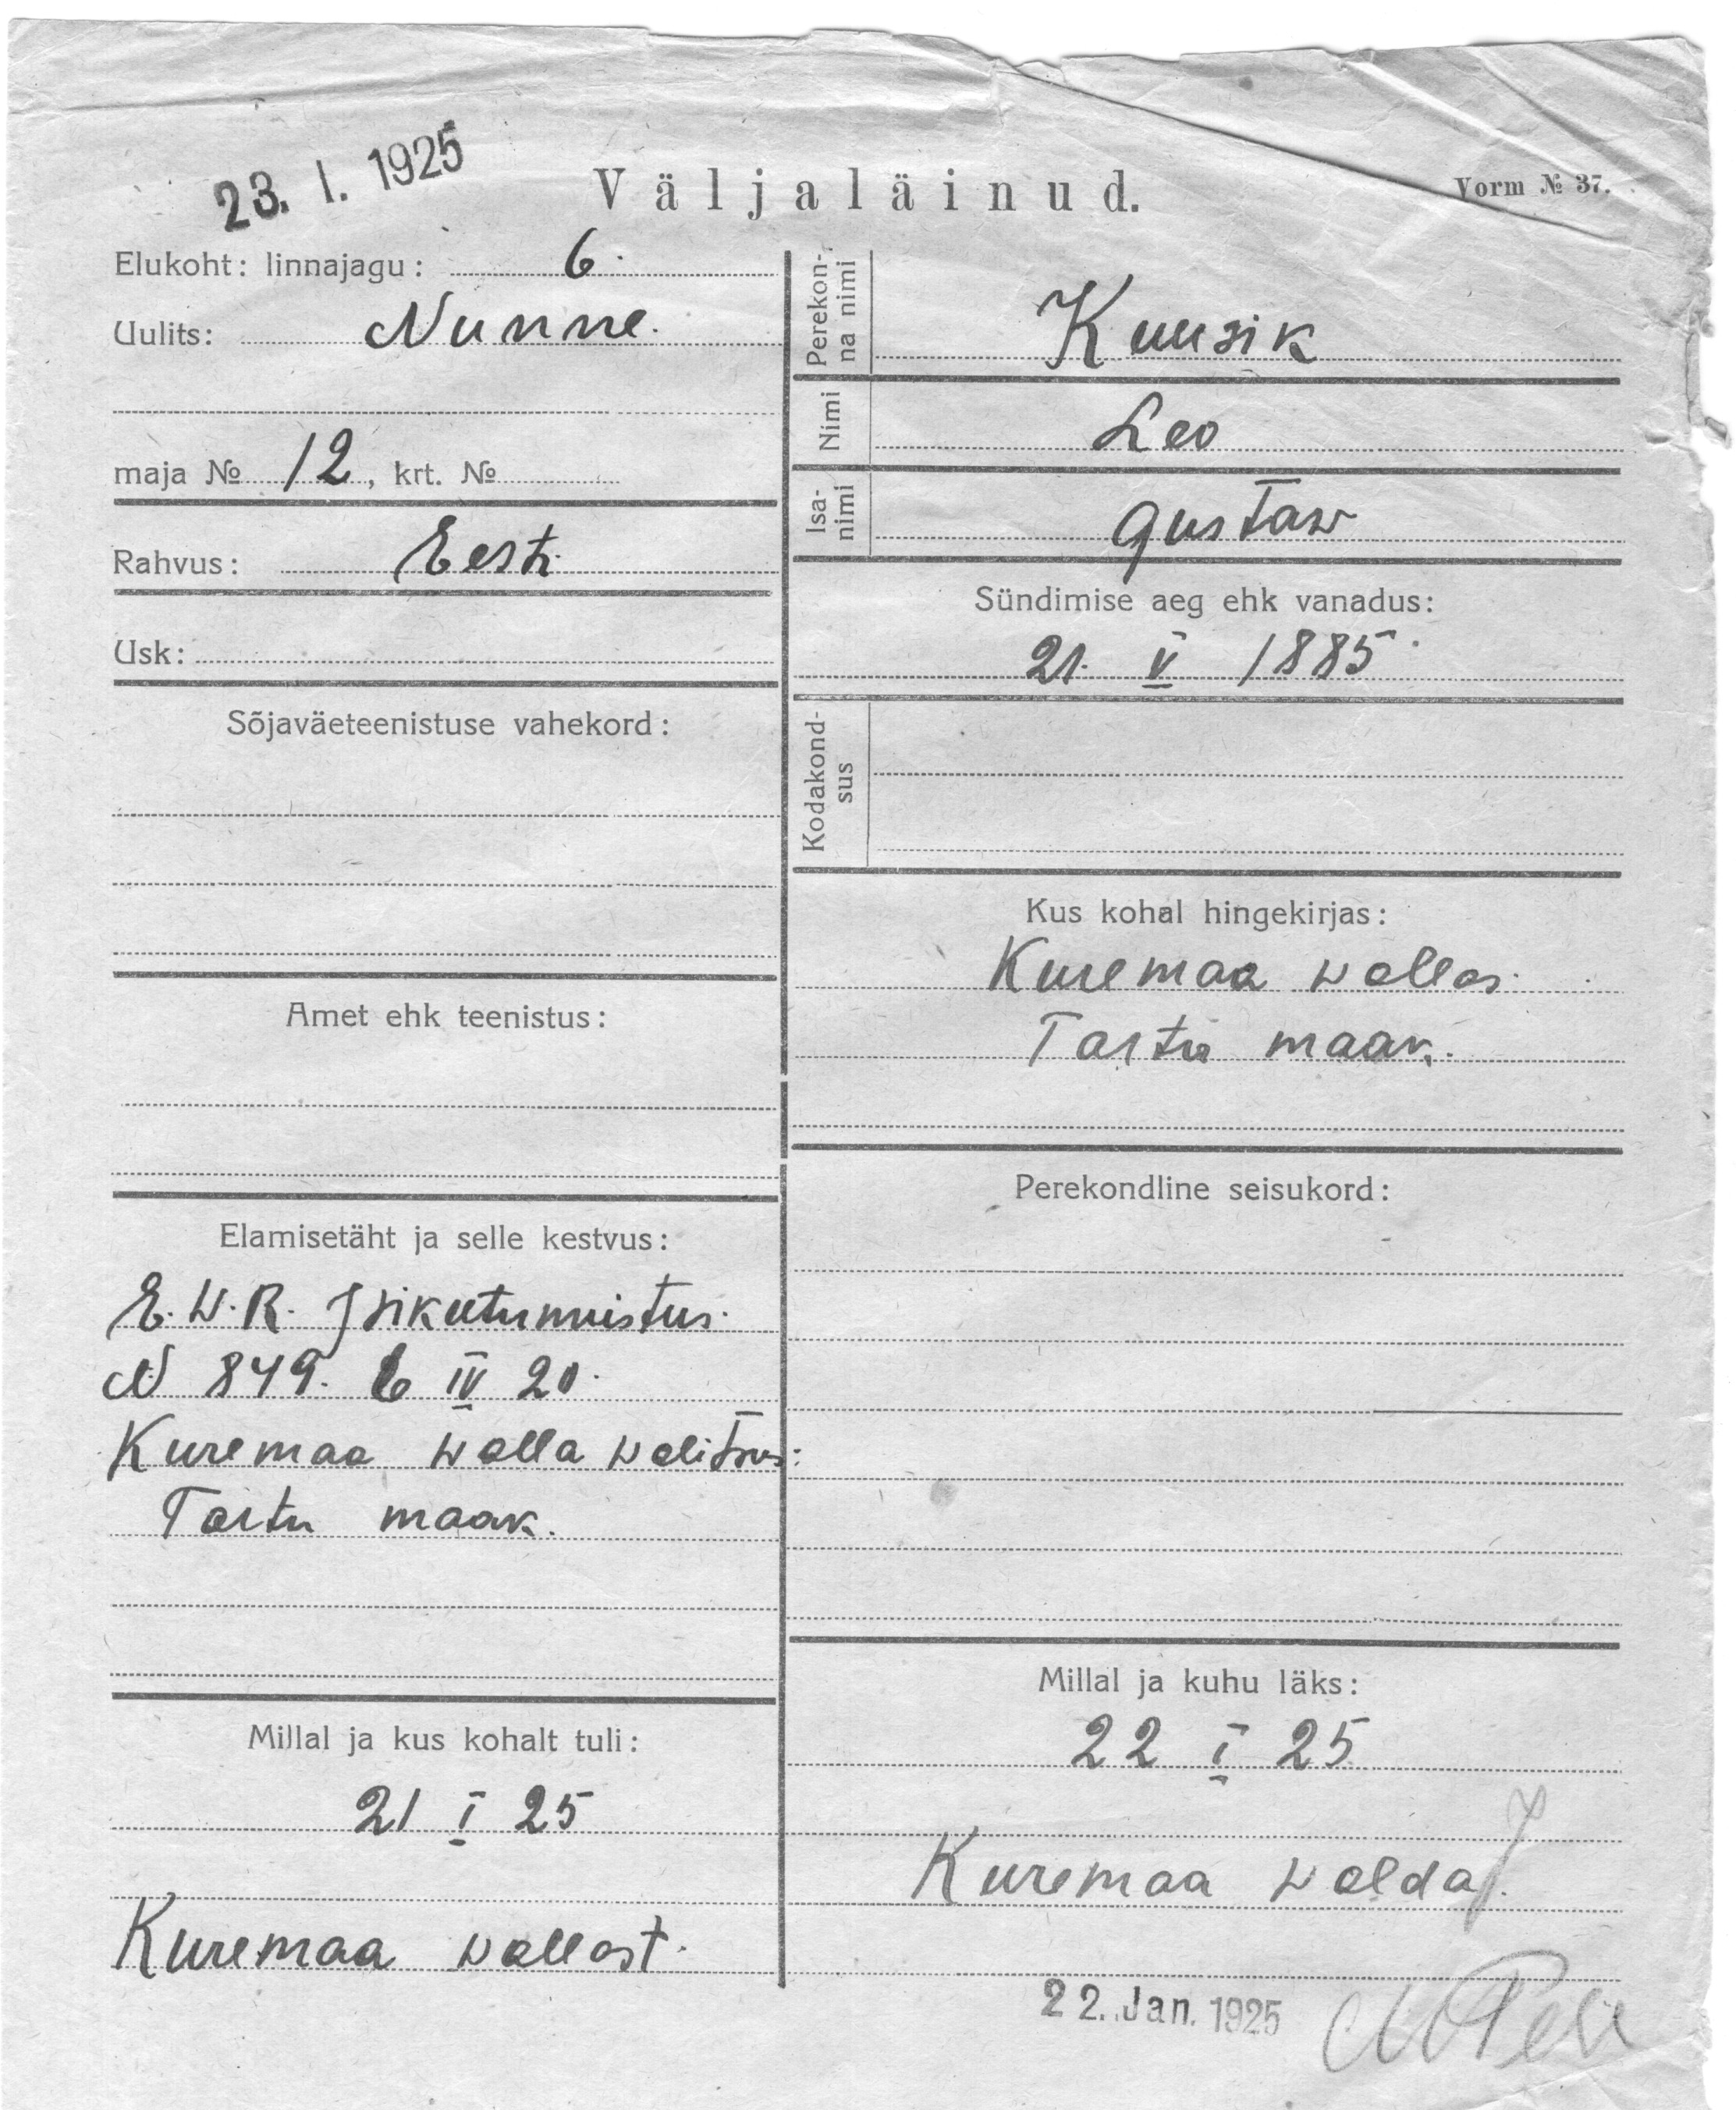 23. I. 1925
Väljaläinud.
Vorm № 37.
Elukoht: linnajagu: 6.
Uulits: Nunne.
maja № 12, krt. №
Rahvus: Eesti
Usk:
Sõjaväeteenistuse vahekord:
Amet ehk teenistus:
Elamisetäht ja selle kestvus:
E. W. R. Isikutunnistus.
N 849. 6 IV 20.
Kuremaa walla walitsus:
Tartu maak.
Millal ja kus kohalt tuli:
21 I 25
Kuremaa wallast.
Perekon-
na nimi
Kuusik
Nimi
Leo
Isa-
nimi
Gustaw
Sündimise aeg ehk vanadus:
21. V 1885.
Kodakond-
sus
Kus kohal hingekirjas:
Kuremaa wallas.
Tartu maak.
Perekondline seisukord:
Millal ja kuhu läks:
22 I 25
Kuremaa walda.
22. Jan. 1925